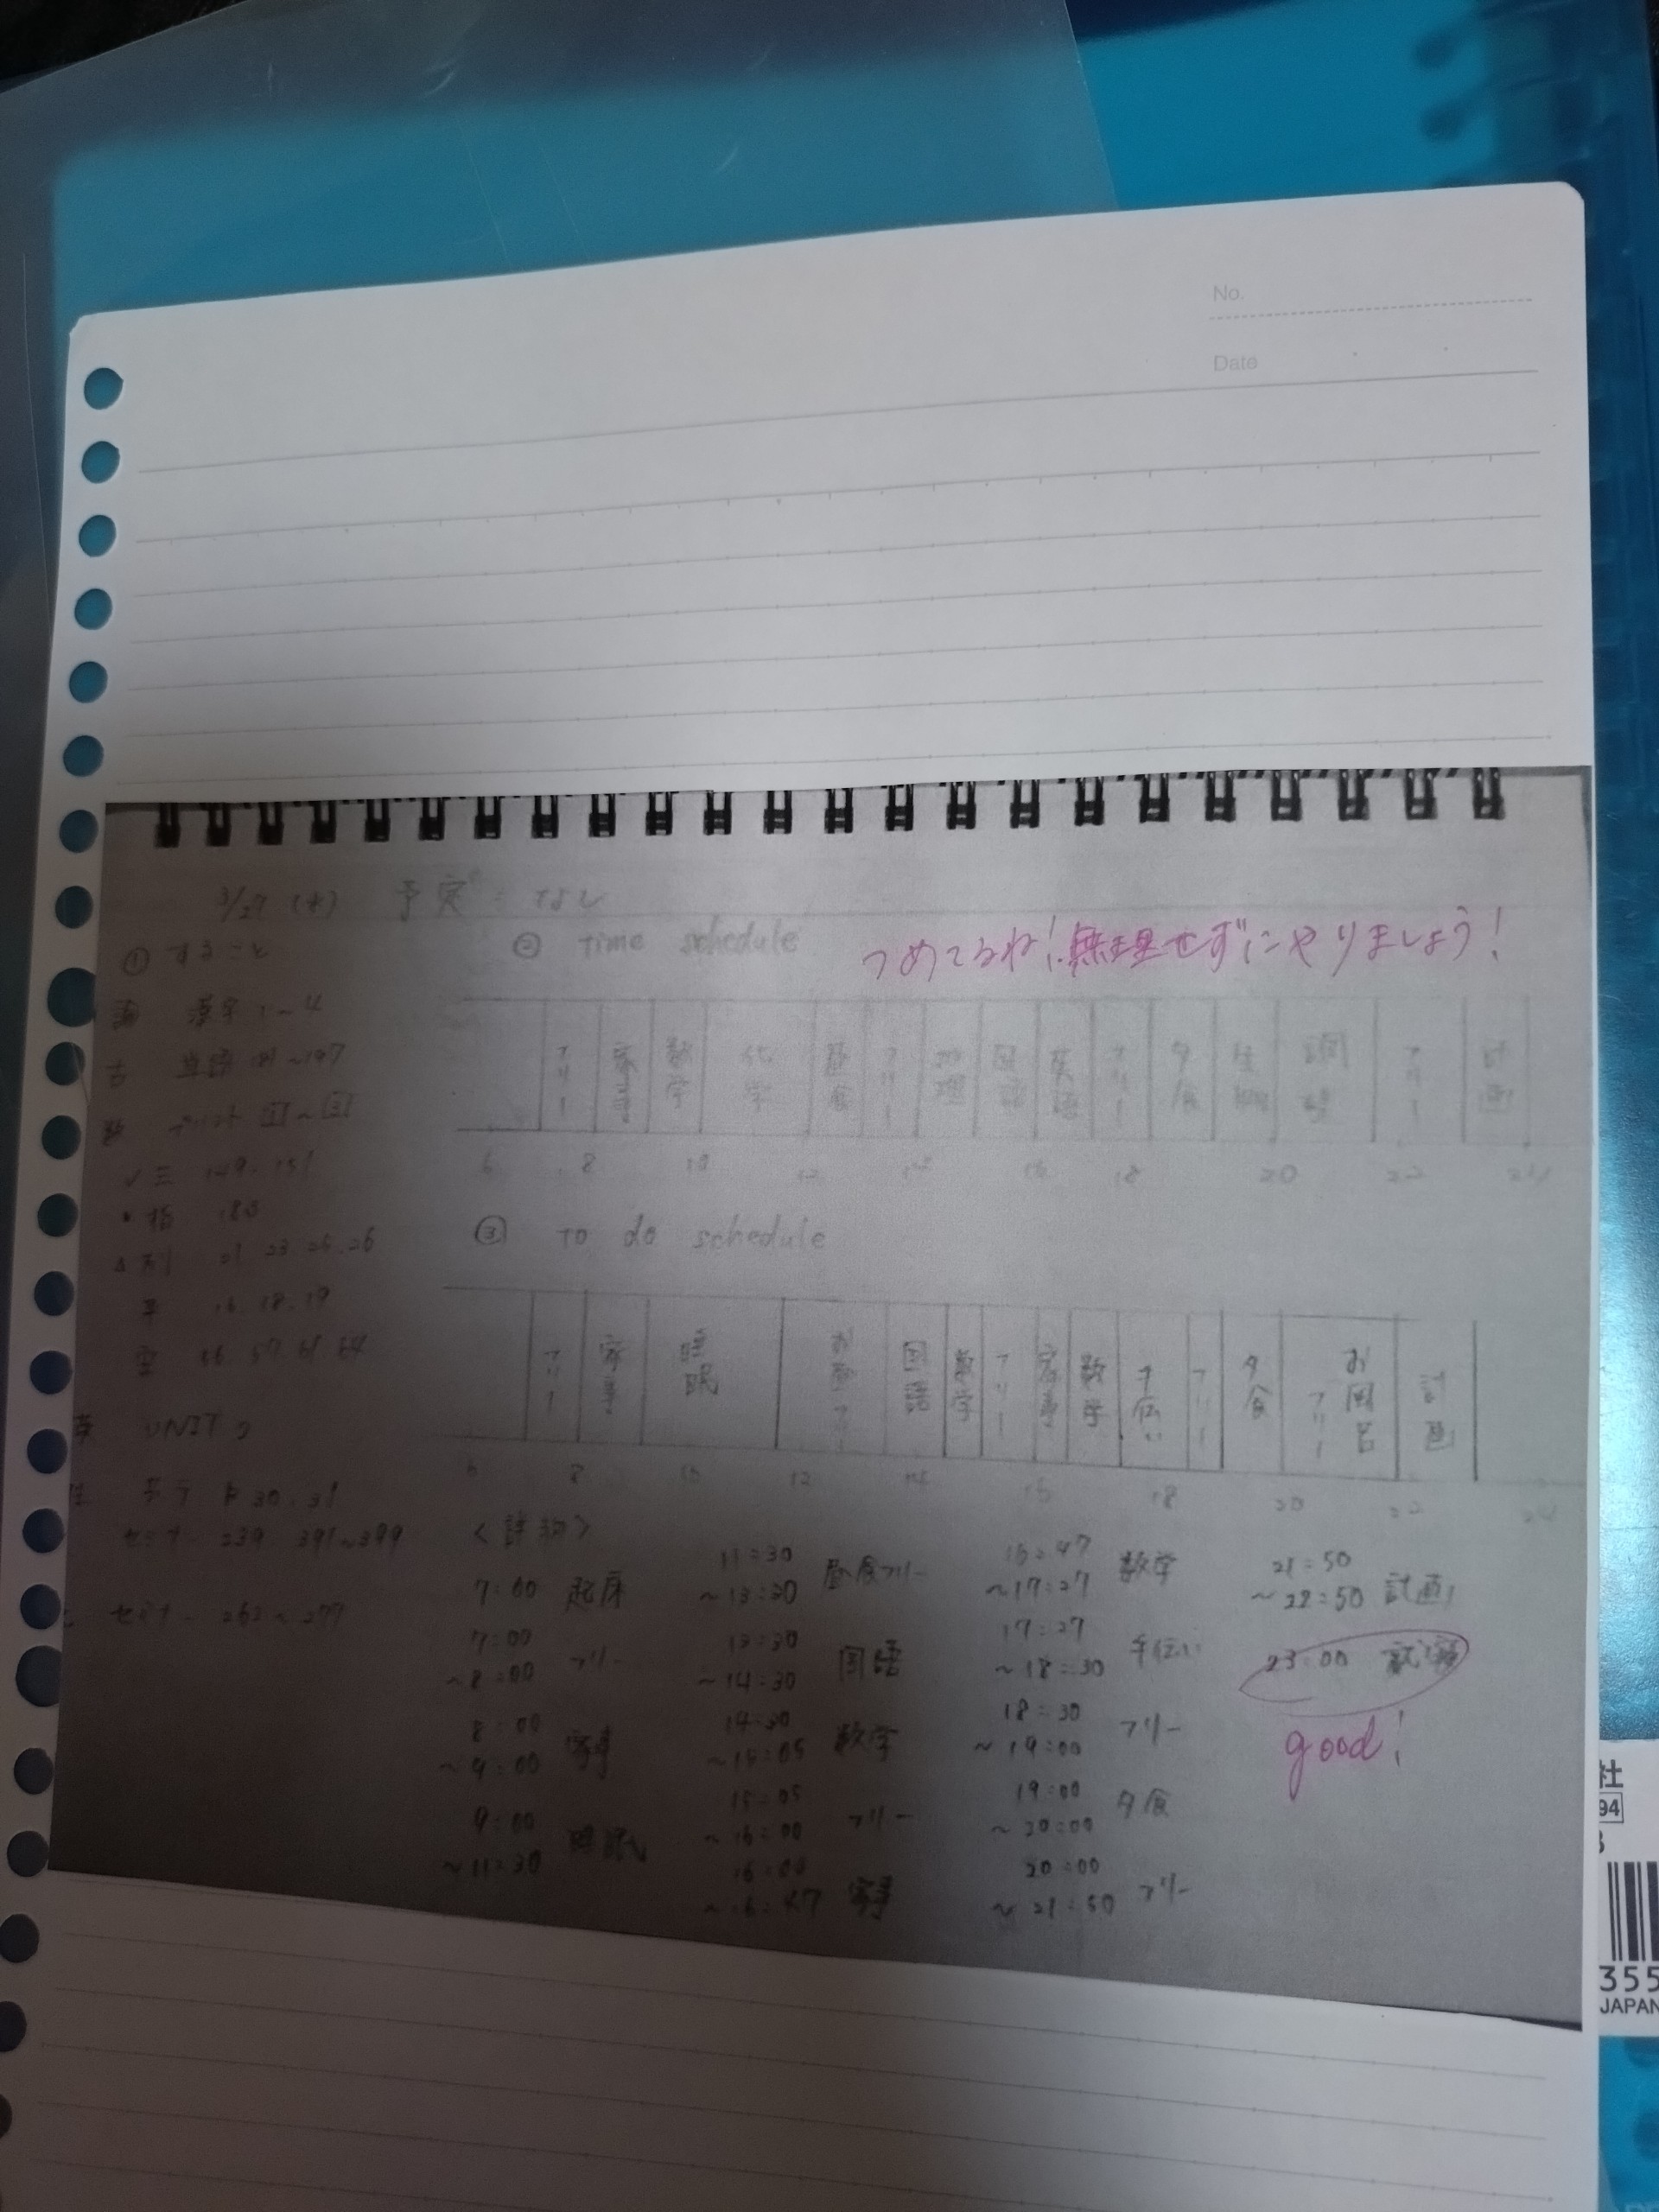 No.
Date
3/27 (水) 予定：なし
① すること
漢字 1～4
古 単語 181～197
数 プリント
三 149. 151
指 180
列 21 23 25. 26
平 16. 18. 19
空 56 57. 61 64
UNIT 9
P 30. 31
セミナー 239. 391～399
セミナー 262～277
② Time schedule
つめてるね！無理せずにやりましょう！
フリー
家事
数学
化学
昼食
フリー
物理
国語
英語
フリー
夕食
生物
フリー
計画
6 8 10 12 14 16 18 20 22 24
③ To do schedule
フリー
家事
睡眠
国語
数学
フリー
家事
数学
手伝い
フリー
夕食
お風呂
フリー
計画
6 8 10 12 14 16 18 20 22 24
<詳細>
7:00 起床
7:00
～8:00 フリー
8:00
～9:00 家事
9:00
～11:30 睡眠
11:30
～13:30 昼食フリー
13:30
～14:30 国語
14:30
～15:05 数学
15:05
～16:00 フリー
16:00
～16:47 家事
16:47
～17:27 数学
17:27
～18:30 手伝い
18:30
～19:00 フリー
19:00
～20:00 夕食
20:00
～21:50 フリー
21:50
～22:50 計画
23:00 就寝
good!
社
94
355
JAPAN